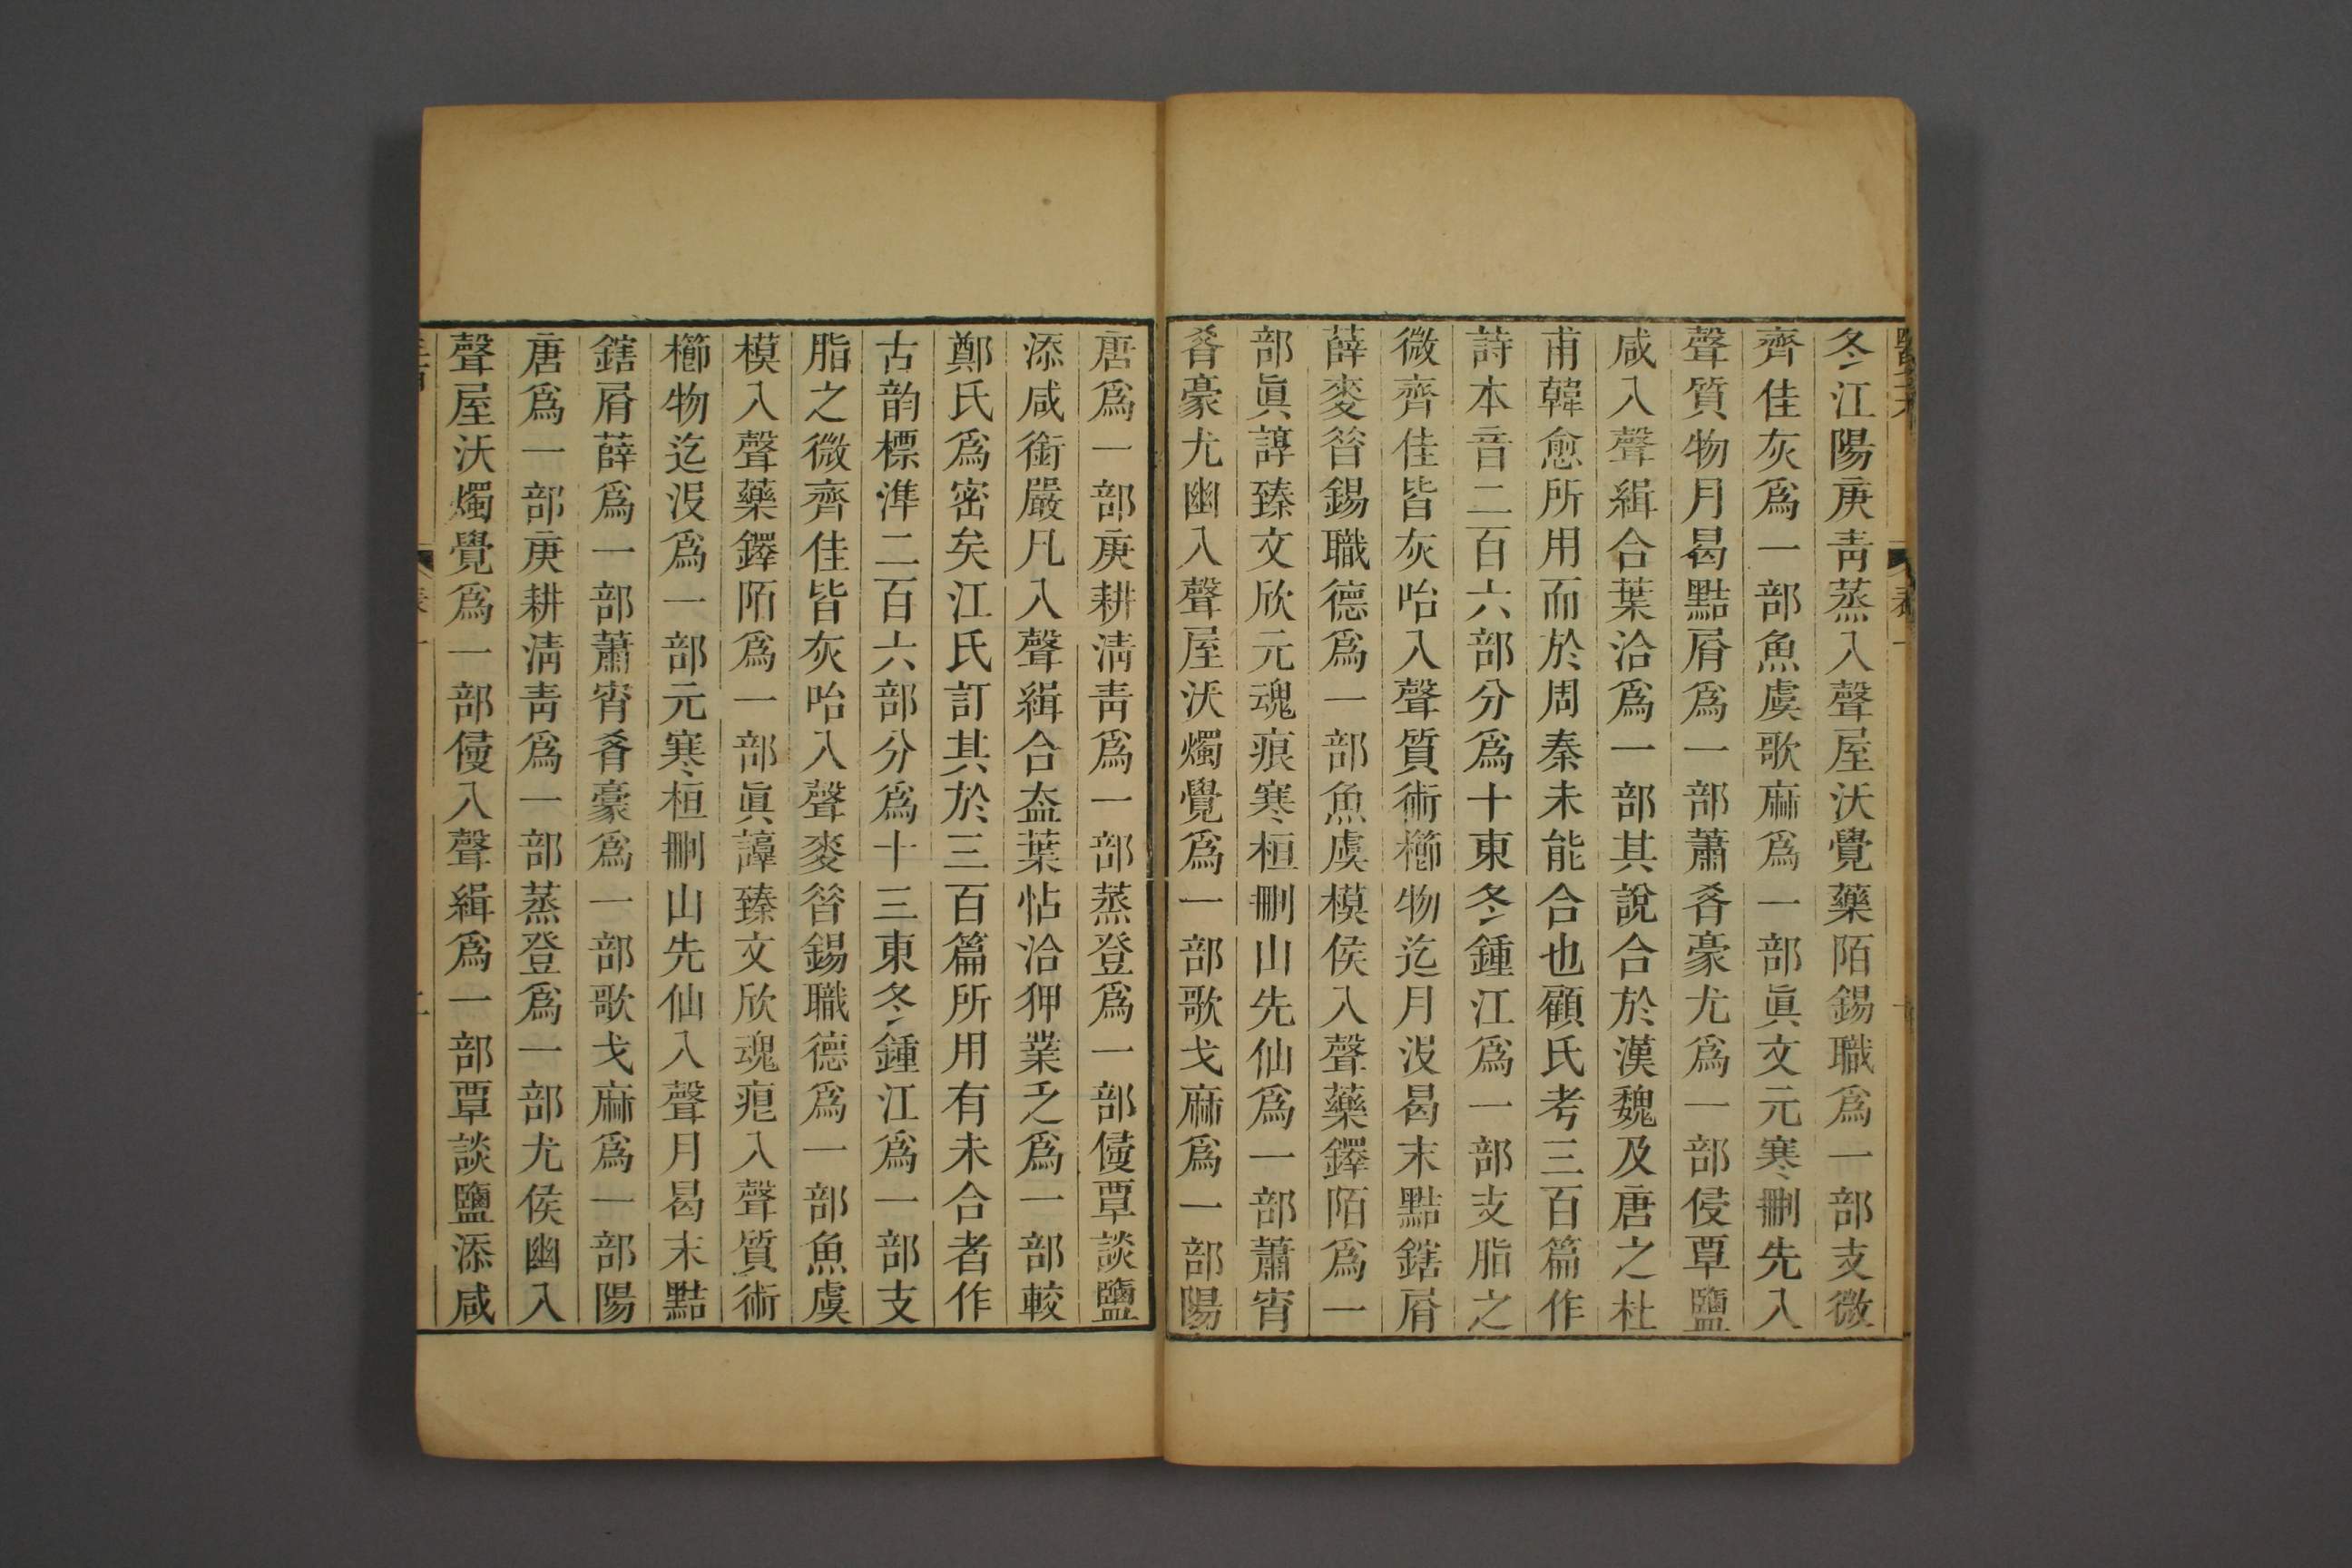 冬江陽庚靑蒸入聲屋沃覺藥陌錫職爲一部支微
齊佳灰爲一部魚虞歌麻爲一部眞文元寒刪先入
聲質物月曷黠屑爲一部蕭肴豪尤爲一部侵覃鹽
咸入聲緝合葉洽爲一部其說合於漢魏及唐之杜
甫韓愈所用而於周秦未能合也顧氏考三百篇作
詩本音二百六部分爲十東冬鍾江爲一部支脂之
微齊佳皆灰咍入聲質術櫛物迄月沒曷末黠鎋屑
薛麥昔錫職德爲一部魚虞模侯入聲藥鐸陌爲一
部眞諄臻文欣元魂痕寒桓刪山先仙爲一部蕭宵
肴豪尤幽入聲屋沃燭覺爲一部歌戈麻爲一部陽
唐爲一部庚耕淸靑爲一部蒸登爲一部侵覃談鹽
添咸銜嚴凡入聲緝合盍葉怗洽狎業乏爲一部較
鄭氏爲密矣江氏訂其於三百篇所用有未合者作
古韵標準二百六部分爲十三東冬鍾江爲一部支
脂之微齊佳皆灰咍入聲麥昔錫職德爲一部魚虞
模入聲藥鐸陌爲一部眞諄臻文欣魂痕入聲質術
櫛物迄沒爲一部元寒桓刪山先仙入聲月曷末黠
鎋屑薛爲一部蕭宵肴豪爲一部歌戈麻爲一部陽
唐爲一部庚耕淸靑爲一部蒸登爲一部尤侯幽入
聲屋沃燭覺爲一部侵入聲緝爲一部覃談鹽添咸